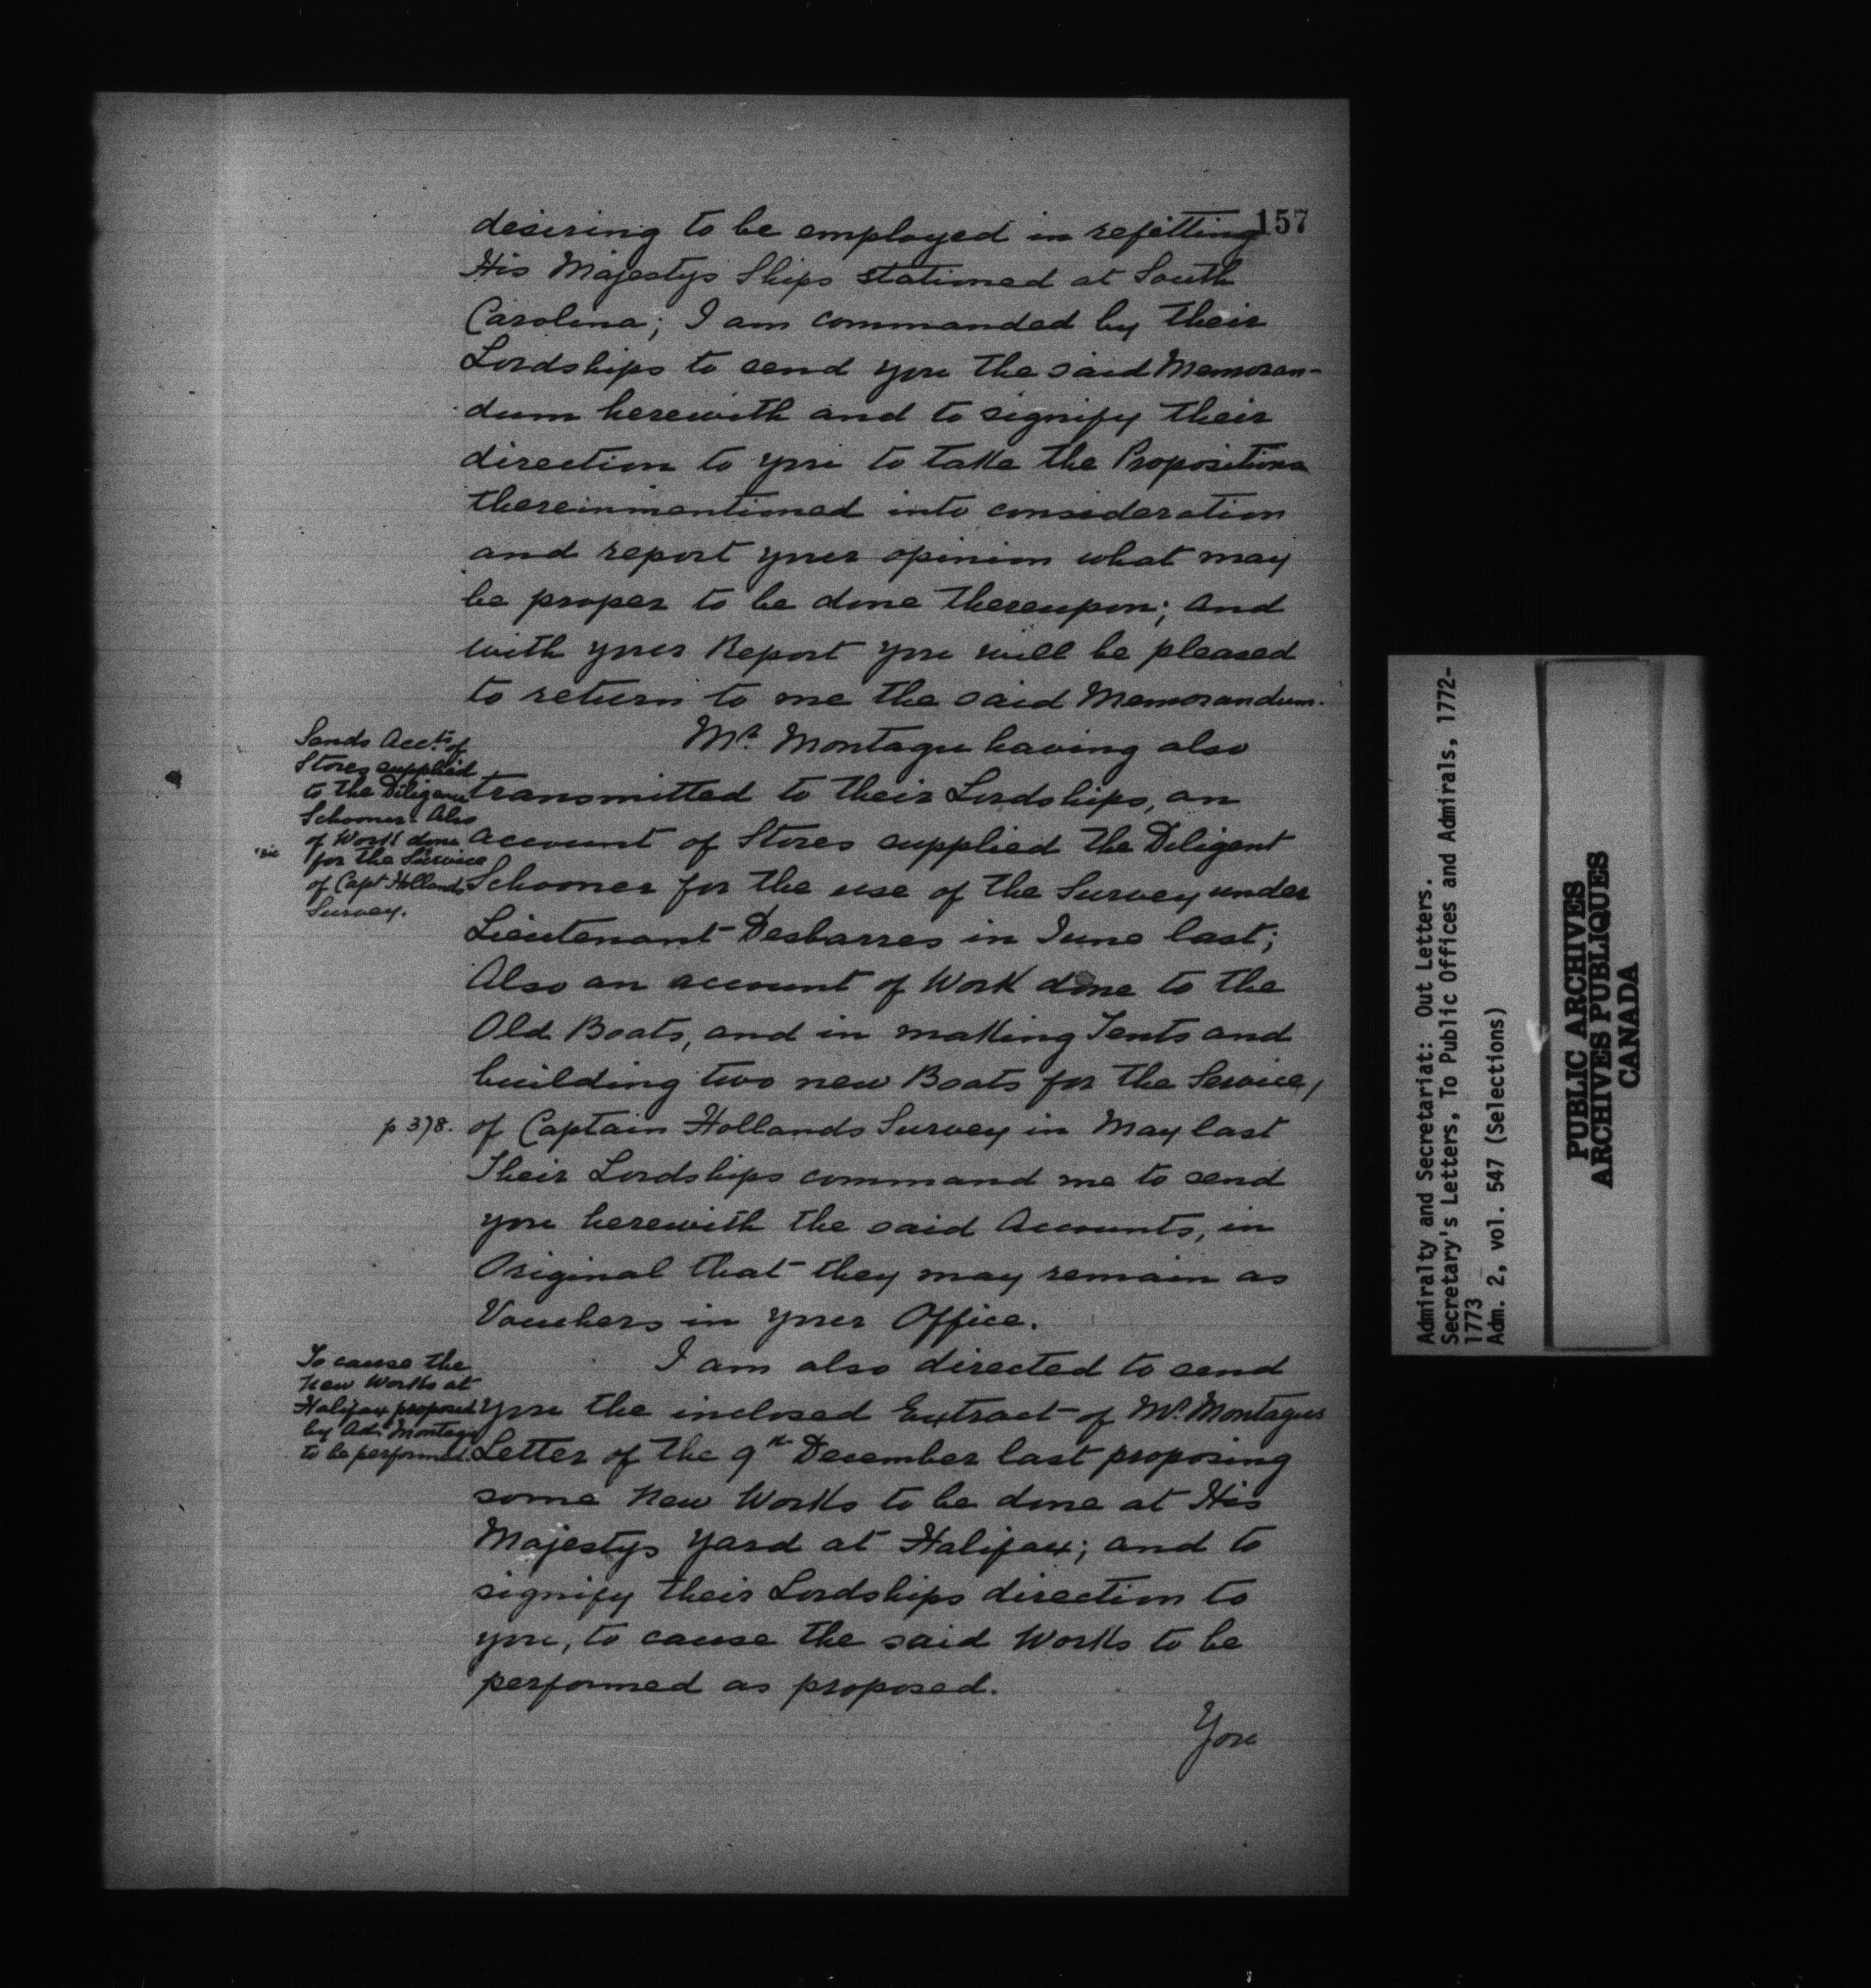 157
desiring to be employed in refitting
His Majestys Ships stationed at South
Carolina; I am commanded by their
Lordships to send you the said Memoran-
dum herewith and to signify their
direction to you to take the Propositions
thereinmentioned into consideration
and report your opinion what may
be proper to be done thereupon; and
with your Report you will be pleased
to return to me the said Memorandum.
Sends Accts. of
Stores supplied
to the Diligent
Schooner. Also
of Work done
sic
for the Survice
of Capt Hollands
Survey.
Mr. Montagu having also
transmitted to their Lordships, an
account of Stores supplied the Diligent
Schooner for the use of the Survey under
Lieutenant Desbarres in June last;
Also an account of Work done to the
Old Boats, and in making Tents and
building two new Boats for the Service,
p 378.
of Captain Hollands Survey in May last
Their Lordships command me to send
you herewith the said Accounts, in
Original that they may remain as
Vouchers in your Office.
To cause the
New Works at
Halifax proposed
by Ad. Montagu
to be performed.
I am also directed to send
you the inclosed Extract of Mr. Montagus
Letter of the 9th December last proposing
some New Works to be done at His
Majestys Yard at Halifax; and to
signify their Lordships direction to
you, to cause the said Works to be
performed as proposed.
You
Admiralty and Secretariat: Out Letters.
Secretary's Letters, To Public Offices and Admirals, 1772-
1773
Adm. 2, vol. 547 (Selections)
PUBLIC ARCHIVES
ARCHIVES PUBLIQUES
CANADA